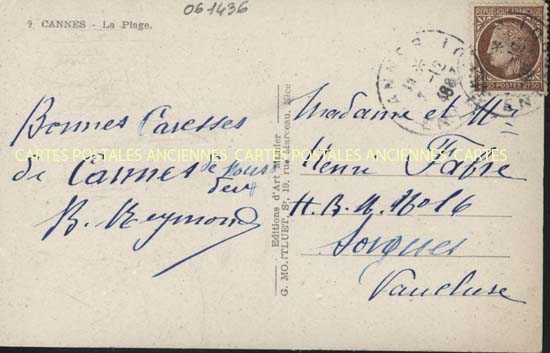 061436
9 CANNES - La Plage.
Bonnes Caresses
de Cannes de tous
deux
R. Reymond
Editions d'Art Munier
G. MONTLUET Sr, 19, rue Marceau, Nice
REPUBLIQUE FRANÇAISE
POSTES 2f50
CANNES
Madame et Mr
Henri Fabre
H.B.M. No 16
Sorgues
Vaucluse
CARTES POSTALES ANCIENNES CARTES POSTALES ANCIENNES CARTES POSTALES ANCIENNES